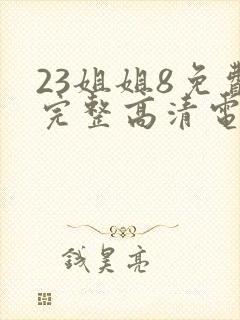 23姐姐8免費
完整高清電
钱昊亮